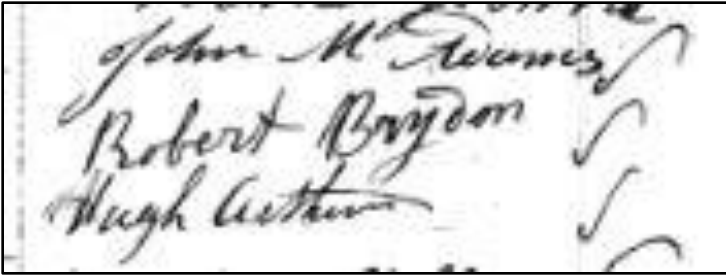 John McAdams
Robert Brydon
Hugh Arthur